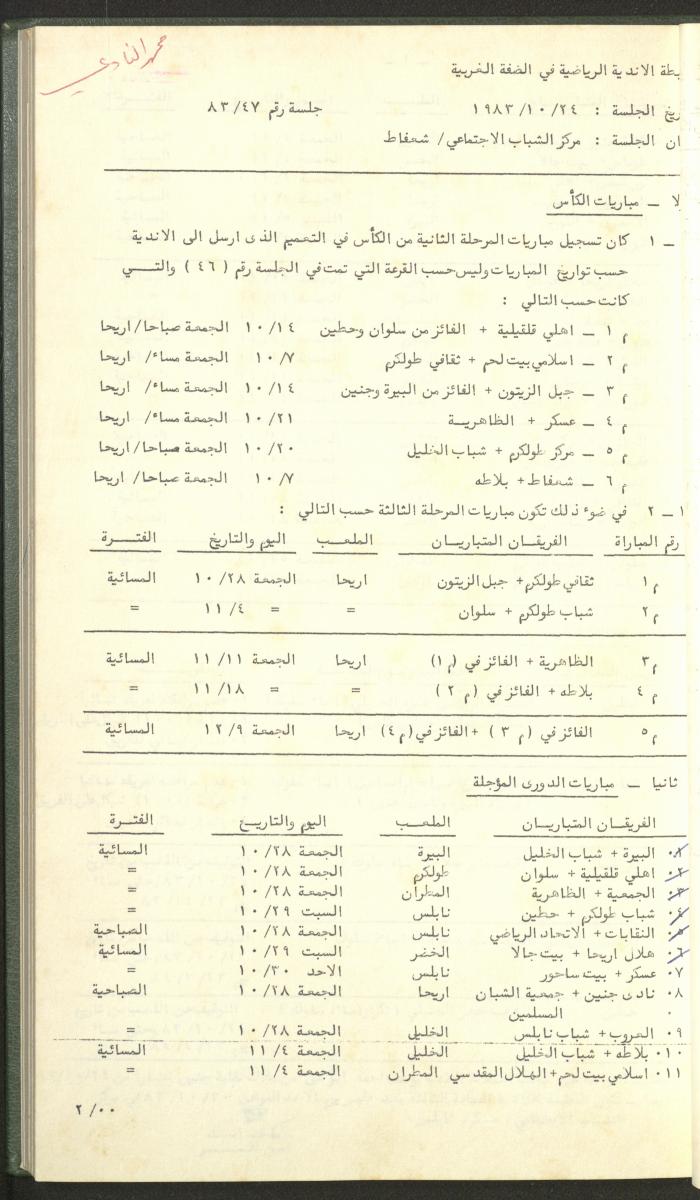 بطة الاندية الرياضية في الضفة الغربية
ريخ الجلسة : ٢٤/ ١٠/ ١٩٨٣ جلسة رقم ٨٣/٤٧
ان الجلسة : مركز الشباب الاجتماعي/ شعفاط
لا – مباريات الكأس
– ١ كان تسجيل مباريات المرحلة الثانية من الكأس في التعميم الذى ارسل الى الاندية
حسب تواريخ المباريات وليس حسب القرعة التي تمت في الجلسة رقم ( ٤٦ ) والتــي
كانت حسب التالي :
م ١ – اهلي قلقيلية + الفائز من سلوان وحطين ١٠/١٤ الجمعة صباحا/ اريحا
م ٢ – اسلامي بيت لحم + ثقافي طولكرم ١٠/٧ الجمعة مساء/ اريحا
م ٣ – جبل الزيتون + الفائز من البيرة وجنين ١٠/١٤ الجمعة مساء/ اريحا
م ٤ – عسكر + الظاهريــة ١٠/٢١ الجمعة مساء/ اريحا
م ٥ – مركز طولكرم + شباب الخليل ١٠/٢٠ الجمعة صباحا/ اريحا
م ٦ – شعفاط + بلاطه ١٠/٧ الجمعة صباحا/ اريحا
١ – ٢ في ضوء ذلك تكون مباريات المرحلة الثالثة حسب التالي :
رقم المباراة الفريقــان المتباريــان الملعــب اليوم والتاريخ الفتــرة
م ١ ثقافي طولكرم + جبل الزيتون اريحا الجمعة ١٠/٢٨ المسائية
م ٢ شباب طولكرم + سلوان = = ١١/٤ =
م ٣ الظاهرية + الفائز في (م ١) اريحا الجمعة ١١/١١ المسائية
م ٤ بلاطه + الفائز في (م ٢ ) = = ١١/١٨ =
م ٥ الفائز في (م ٣ ) + الفائز في (م ٤) اريحا الجمعة ١٢/٩ المسائية
ثانيا – مباريات الدورى المؤجلة
الفريقــان المتباريــان الملعــب اليوم والتاريــخ الفتــرة
١٠ البيرة + شباب الخليل البيرة الجمعة ١٠/٢٨ المسائية
٢٠ اهلي قلقيلية + سلوان طولكرم الجمعة ١٠/٢٨ =
٣٠ الجمعية + الظاهرية المطران الجمعة ١٠/٢٨ =
٤٠ شباب طولكرم + حطين نابلس السبت ١٠/٢٩ =
٥٠ النقابات + الاتحاد الرياضي نابلس الجمعة ١٠/٢٨ الصباحية
٦٠ هلال اريحا + بيت جالا الخضر السبت ١٠/٢٩ المسائية
٠٧ عسكر + بيت ساحور نابلس الاحد ١٠/٣٠ =
٠٨ نادى جنين + جمعية الشبان اريحا الجمعة ١٠/٢٨ الصباحية
المسلمين
٠٩ العروب + شباب نابلس الخليل الجمعة ١٠/٢٨ =
٠١٠ بلاطه + شباب الخليل الخليل الجمعة ١١/٤ المسائية
٠١١ اسلامي بيت لحم + الهلال المقدسي المطران الجمعة ١١/٤ =
٢/٠٠